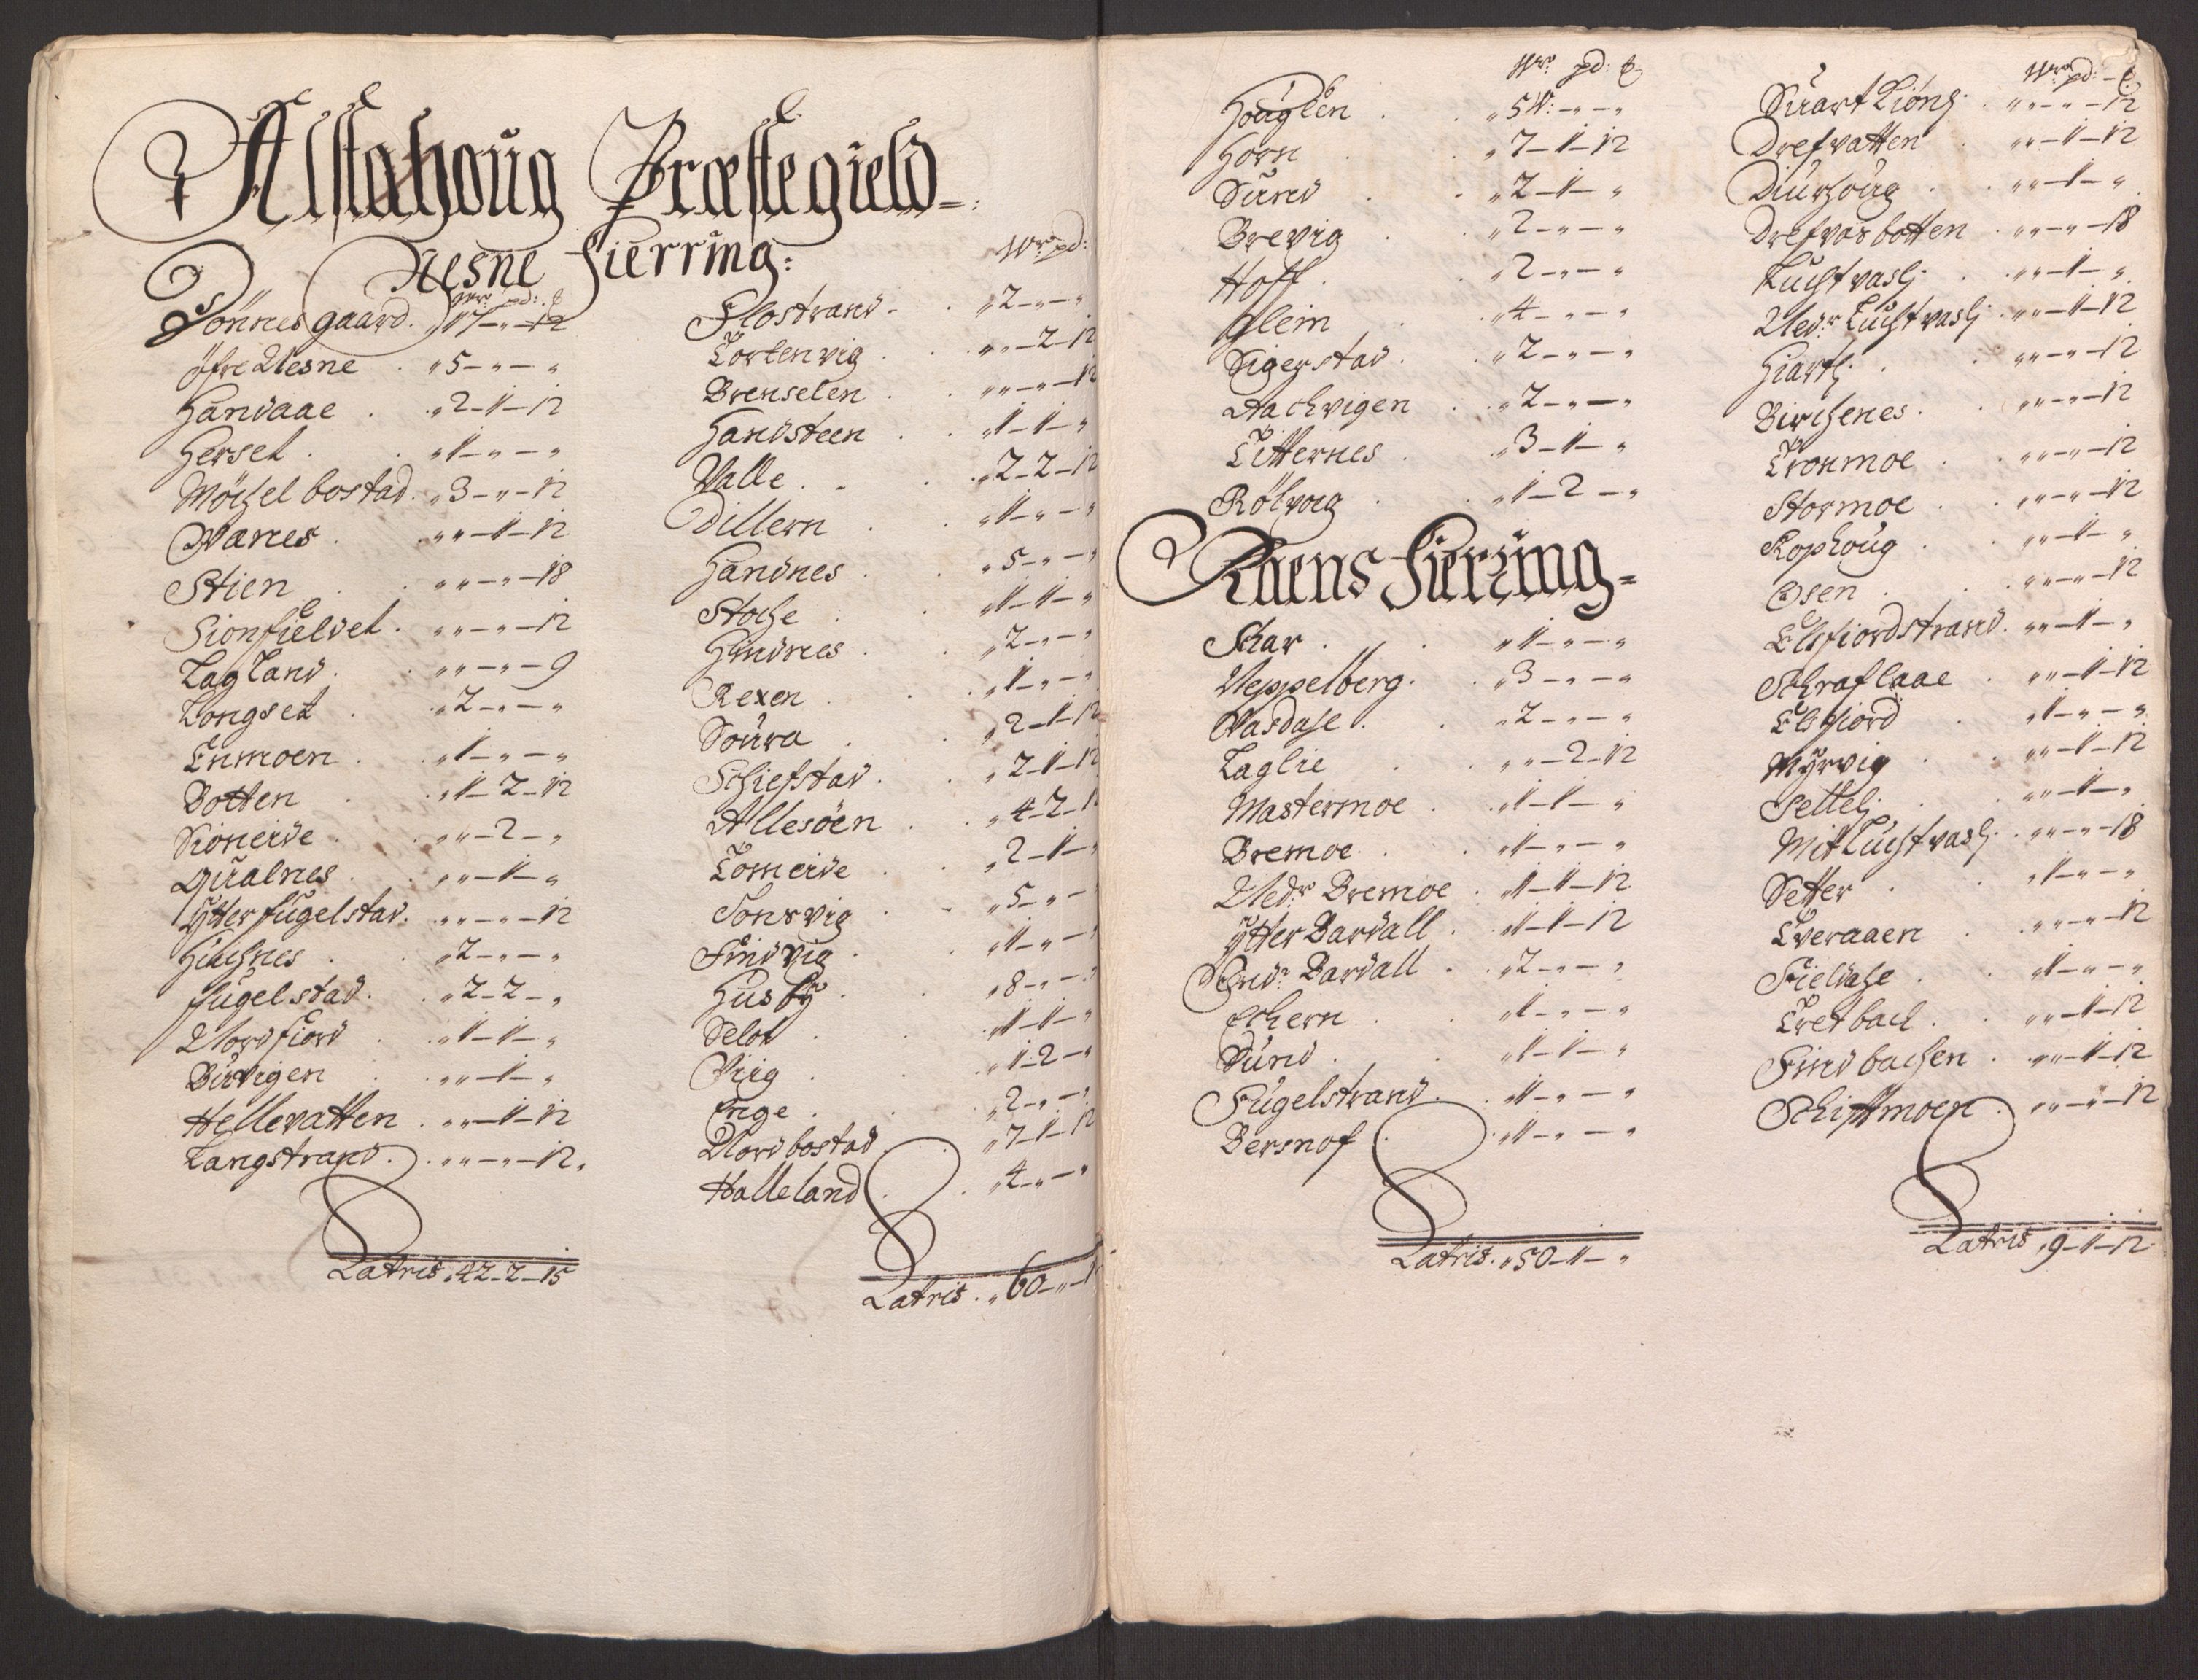 Alstahoug Præstegield
Nesne Fierring:
Wr: pd: ℔
Dönnes gaard. „ 17 - „ - 12
öfre Nesne . „ 5 - „ - „
Handaae . „ 2 - 1 - 12
Herset . . „ 1 - „ - „
Möchelbostad. „ 3 - „ - 12
Vanes . „ „ - 1 - 12
Stien . „ „ - „ - 18
Sionfieldet . „ „ - „ - 12
Lagland . . „ „ - „ - 9
Longset . . „ 2 - „ - „
Enmoen . . „ 1 - „ - „
Botten . . „ 1 - 2 - 12
Sioneide . . „ „ - 2 - „
Qualnes . . „ „ - 1 - „
Ytterfugelstad. . „ „ - „ - 12
Huchnes . . „ 2 - „ - „
fugelstad . . „ 2 - 2 - „
Nordfiord . . „ 1 - 1 - „
Birvigen . . „ „ - 1 - „
Hellevatten . „ „ - 1 - 12
Langstrand . . „ „ - „ - 12 .
Latris . 42 - 2 - 15
Wr: pd:
Flostrand - . „ 2 - „ - „
Tortenvig . . „ „ - 2 - 12
Brenselen . . „ „ - „ - 12
Handsteen . . „ 1 - 1 - „
Valle . . . „ 2 - 2 - 12
Dillern . . „ 1 - „ - „
Handnes . . „ 5 - „ - „
Stoche . . „ 1 - 1 - „
Hindnes . . „ 2 - „ - „
Rexen . . „ 1 - „ - „
Soura . . „ 2 - 1 - 12
Schiefstad . . „ 2 - 1 - 12
Allesöen . . „ 4 - 2 - 1
Tomeide . . „ 2 - 1 - „
Sonsvig . . „ 5 - „ -
Findvig . . „ 1 - „ -
Husby . . „ 8 - „ -
Seloe . . „ 1 - 1 - „
Viig . . „ 1 - 2 - „
Enge . . „ 2 - „ -
Nordbostad . „ 7 - 1 - 12
Halleland . . „ 4 - „ - „
Latris . „ 60 - „ - 1
Wr: pd: ℔
Hougleen . . „ 5 1: - „ - „
Horn . . „ 7 - 1 - 12
Sund . . „ 2 - 1 - „
Brevig . . „ 2 - „ - „
Hoff . . „ 2 - „ - „
Glein . . „ 4 - „ - „
Sigerstad . . „ 2 - „ - „
Aachvigen . . „ 2 - „ - „
Titternes . . „ 3 - 1 - „
Rölvog . . „ 1 - 2 - „
Raens Fierring
Schar . . „ 1 - „ - „
Neppelberg . . „ 3 - „ - „
Vasdahl . . „ 2 - „ - „
Laglie . . „ „ - 2 - 12
Mastermoe . . „ 1 - 1 - „
Bremoe . . „ 1 - „ - „
Nedr Bremoe . „ 1 - 1 - 12
Ytter Bardall . „ 1 - 1 - 12
Indr Bardall . „ 2 - „ - „
Echern . . „ 1 - „ - „
Sund . . „ 1 - 1 - „
Fugelstrand . . „ 1 - „ - „
Bersnof . . „ 1 - „ - „
Latris . „ 50 - 1 - „
Wr: pd: ℔
Suart Tiönlj . . „ „ - „ - 12
Drefvatten . „ „ - 1 - 12
Diurhoug . . „ „ - 1 - „
Drefvasbotten . „ „ - „ - 18
Luchtvaslj . . „ „ - 1 - „
Nedr Luchtvaslj . „ „ - 1 - 12
Hiartlj . . „ „ - „ - 12
Birchenes . . „ „ - „ - 12
Tronmoe . . „ „ - „ - 12
Stormoe . . „ „ - „ - 12
Rophoug . . „ „ - 1 - „
Osen . . „ „ - „ - 12
Elsfiordstrand . „ „ - 1 - „
Schraflaae . „ „ - 1 - 12
Elsfiord . „ 1 - „ - „
Myrvig . . „ „ - 1 - 12
Settelj . . „ „ - 1 - „
Mit Luchtvaslj . „ „ - „ - 18
Setter . . „ 1 - „ - „
Tveraaen . . „ „ - „ - 12
Fieldahl . . „ 1 - „ - „
Tverbach . . „ „ - 1 - 12
Findbachen . „ „ - 1 - 12
Schistmoen . „ „ - „ - 12
Latris . 9 - 1 - 12